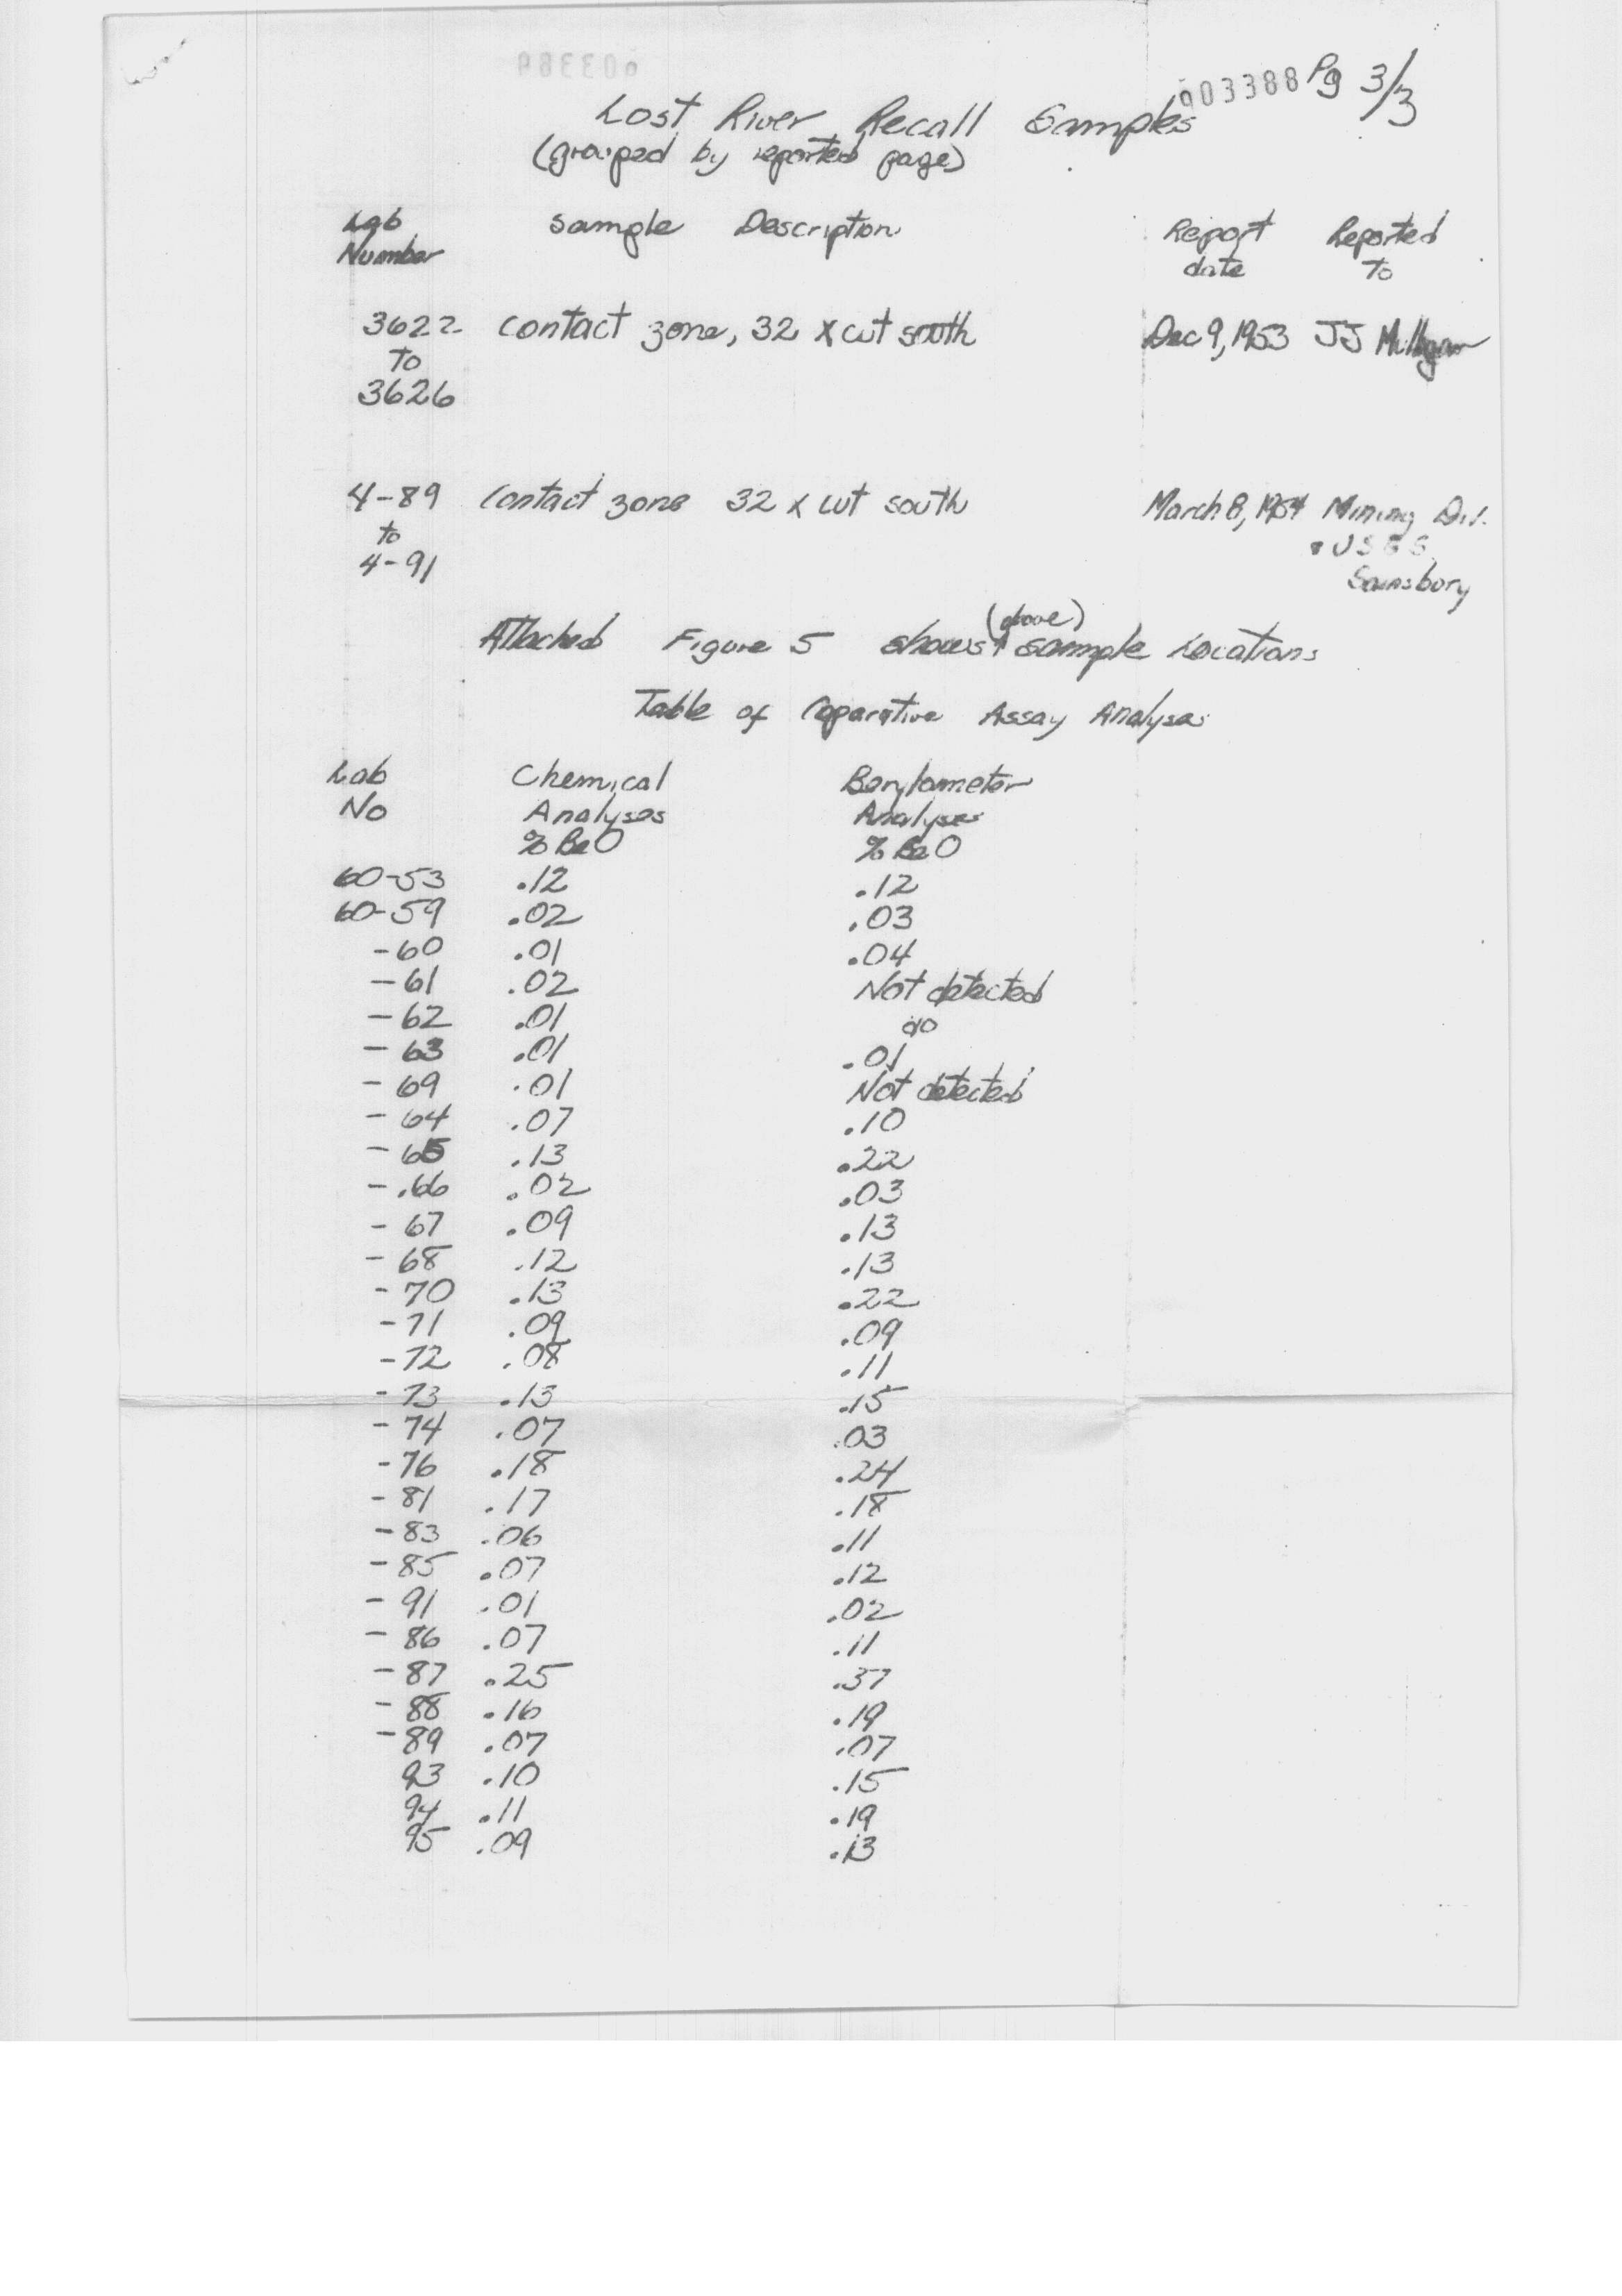 003389
003388 Pg 3/3
Lost River Recall Samples
(grouped by reported page)
Lab Sample Description Report Reported
Number date To
3622 Contact zone, 32 x cut south Dec 9, 1953 JJ Mulligan
To
3626
4-89 Contact zone 32 x cut south March 8, 1954 Mining Div.
to USGS
4-91 Sainsbury
(above)
Attached Figure 5 shows sample Locations
Table of Coparative Assay Analyses
Lab Chemical Berylometer
No Analyses Analyses
% BeO % BeO
60-53 .12 .12
60-59 .02 .03
-60 .01 .04
-61 .02 Not detected
-62 .01 do
-63 .01 .01
-69 .01 Not detected
-64 .07 .10
-65 .13 .22
-.66 .02 .03
-67 .09 .13
-68 .12 .13
-70 .13 .22
-71 .09 .09
-72 .08 .11
-73 .13 .15
-74 .07 .03
-76 .18 .24
-81 .17 .18
-83 .06 .11
-85 .07 .12
-91 .01 .02
-86 .07 .11
-87 .25 .37
-88 .16 .19
-89 .07 .07
93 .10 .15
94 .11 .19
95 .09 .13